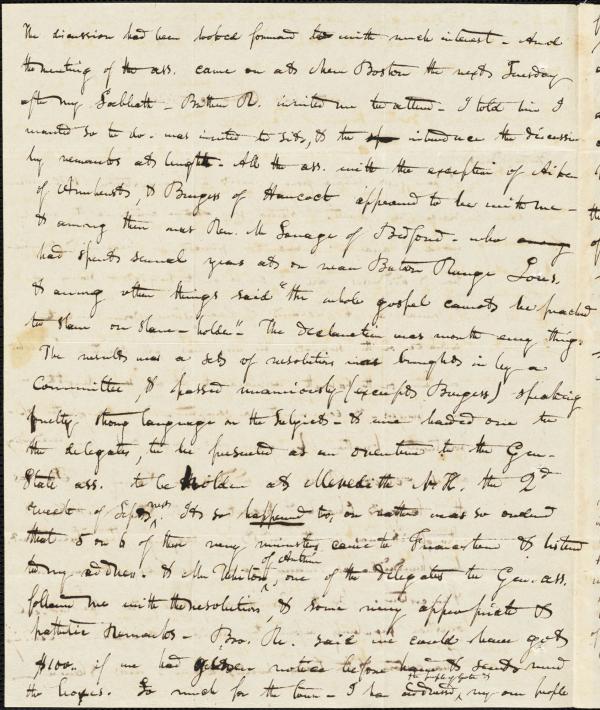 The discussion had been looked forward to with much interest - And
the meeting of the ass. came on at New Boston the next Tuesday
after my Sabbath - Brother R. invited me to attend - I told him I
wanted so to do - was invited to sit, & to introduce the discussion
by remarks at length - All the ass. with the exception of Aiken
of Amherst, & Burgess of Hancock appeared to be with me -
& among them was Rev. Mr Savage of Bedford - who
had spent several years at or near Baton Rouge Lous.
& among other things said "the whole gospel cannot be preached
to slave or slave-holder" - The declaration was worth any thing.
The result was a set of resolutions was brought in by a
Committee, & passed unanimously (except Burgess) speaking
pretty strong language on the subject - & one handed over to
the delegates, to be presented as an overture to the Gen-
State ass. to be holden at Meredith N.H. the 2d
week of Sept next Its so happened to, or rather was so ordered
that 5 or 6 of those very ministers came to Francestown & listened
to my address. & Mr Whiton of Antrim, one of the delegates to Gen. ass.
followed me with the resolutions, & some very appropriate &
pathetic remarks - Bro. R. said we could have got
$100. if we had given notice before hand & sent round
the So much for the tour - I have addressed the people of my own people